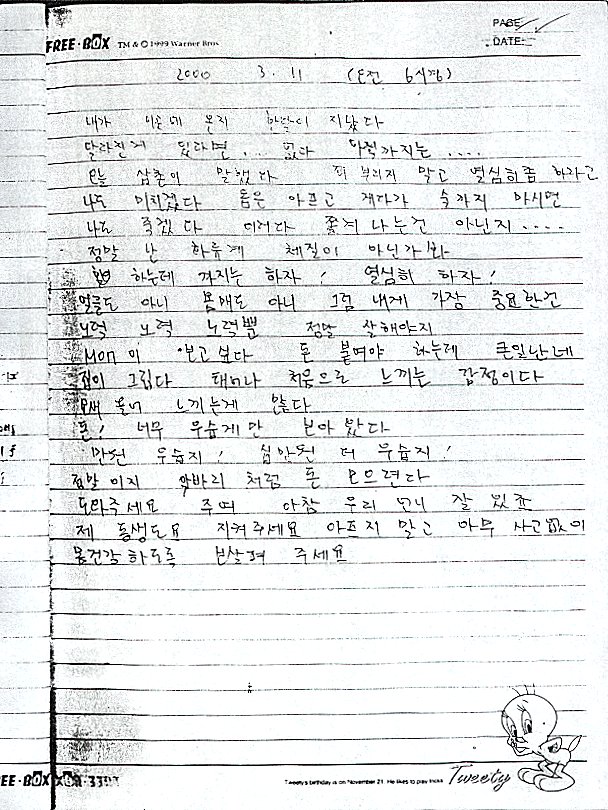 PAGE:
FREE·BOX TM & © 1999 Warner Bros
DATE:
2000 3. 11 (오전 6시경)
내가 이곳에 온지 한달이 지났다
달라진게 있다면... 없다 아직까지는....
오늘 삼촌이 말했다 피 부리지 말고 열심히좀 하라고
나도 미치겠다 몸은 아프고 게다가 술까지 마시면
나도 죽겠다 이러다 쫓겨나는건 아닌지....
정말 난 하류계 체질이 아닌가봐
하는데 까지는 하자! 열심히 하자!
얼굴도 아니 몸매도 아니 그럼 내게 가장 중요한건
노력 노력 노력뿐 정말 잘해야지
Mom 이 보고 싶다 돈 붙여야 하는데 큰일났네
집이 그립다 태어나 처음으로 느끼는 감정이다
요새 들어 느끼는게 많다
돈! 너무 우습게만 보아 왔다
만원 우습지! 십만원 더 우습지!
정말 이지 악바리 처럼 돈 모으련다
도와주세요 주여 아참 우리 언니 잘 있죠
제 동생도요 지켜주세요 아프지 말고 아무 사고없이
몸건강하도록 보살펴 주세요
Tweety's birthday is on November 21. He likes to play tricks
Tweety